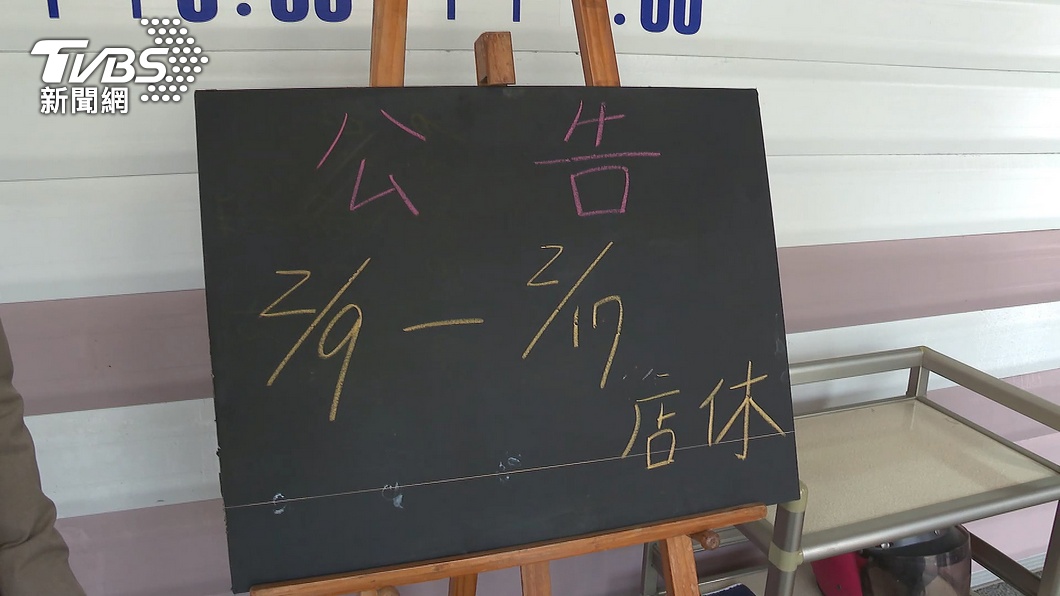 TVBS
新聞網
公告
2/9 — 2/17
店休